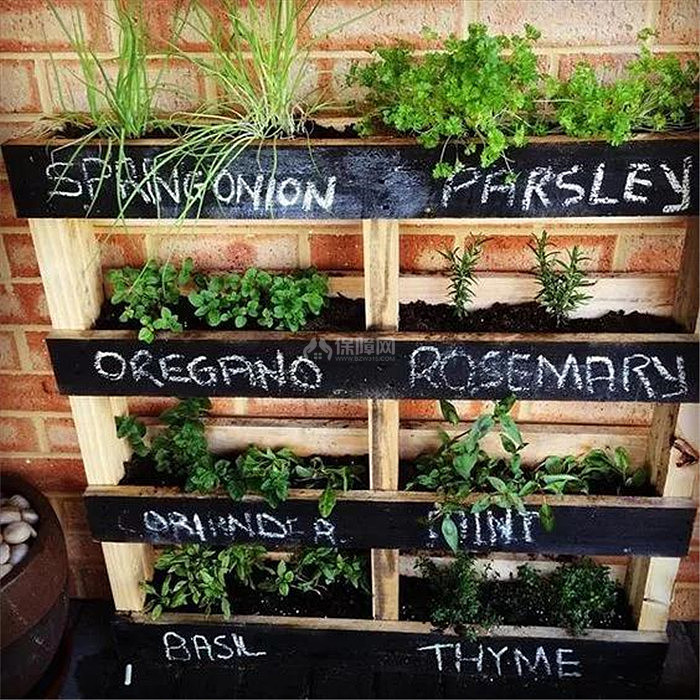 SPRING ONION PARSLEY
OREGANO ROSEMARY
保障网
CORIANDER MINT
BASIL THYME